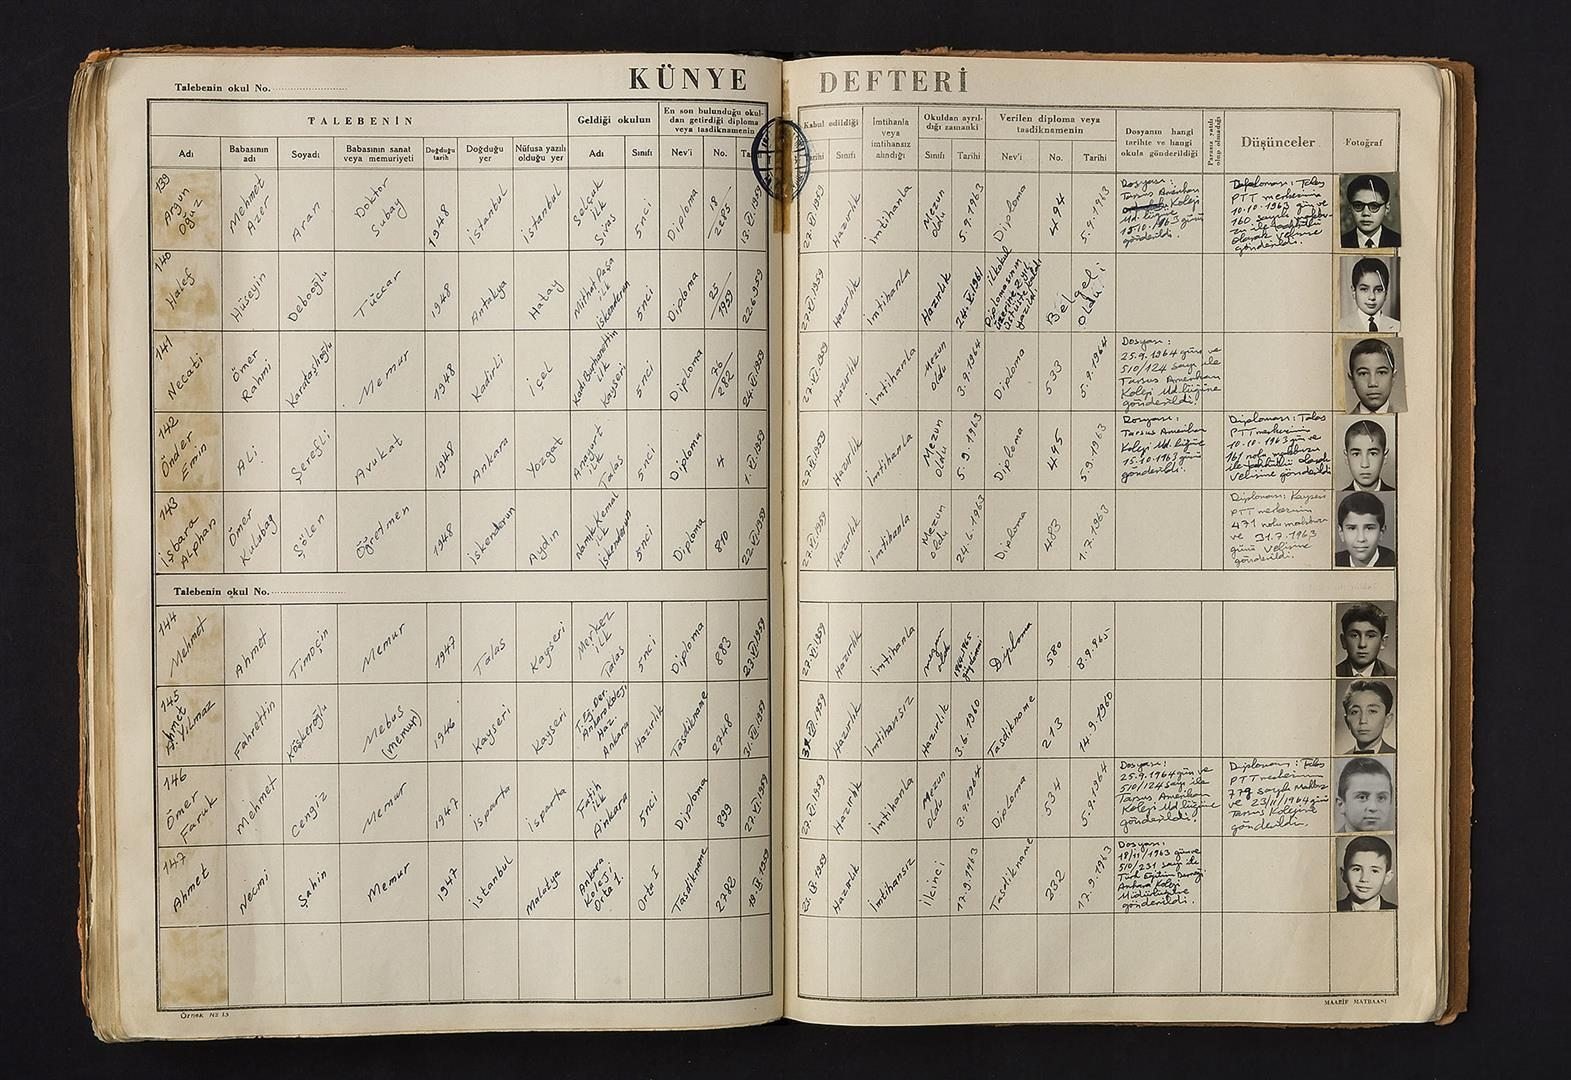 KÜNYE DEFTERİ
Talebenin okul No.
TALEBENİN
Geldiği okulun
En son bulunduğu okul-
dan getirdiği diploma
veya tasdiknamenin
Adı
Babasının
adı
Soyadı
Babasının sanat
veya memuriyeti
Doğduğu
tarih
Doğduğu
yer
Nüfusa yazılı
olduğu yer
Adı
Sınıfı
Nev'i
No.
Kabul edildiği
İmtihanla
veya
imtihansız
alındığı
Okuldan ayrıl-
dığı zamanki
Verilen diploma veya
tasdiknamenin
Dosyanın hangi
tarihte ve hangi
okula gönderildiği
Parasız yatılı
olup olmadığı
Düşünceler
Fotoğraf
Sınıfı
Sınıfı
Tarihi
Nev'i
No.
Tarihi
139
Argun
Oğuz
Mehmet
Azer
Aran
Doktor
Subay
1948
İstanbul
İstanbul
Selçuk
ilk
Sivas
5nci
Diploma
18
2285
13.VI.1959
27.VI.1959
Hazırlık
İmtihanla
Mezun
oldu
5.9.1963
Diploma
494
5.9.1963
Dosyası:
Tarsus Amerikan
Koleji
Md.lüğüne
15.10.1963 günü
gönderildi.
Diploması: Talas
PTT merkezinin
10.10.1963 gün ve
160 sayılı makbu-
zu ile taahhütlü
olarak velisine
gönderildi.
140
Halef
Hüseyin
Debooğlu
Tüccar
1948
Antakya
Hatay
Mithat Paşa
ilk
İskenderun
5nci
Diploma
25
1959
22.6.1959
27.VI.1959
Hazırlık
İmtihanla
Hazırlık
24.V.1961
İlkokul
Diplomasının
üzerine 2 yıl
üstüste kaldı
yazıldı
Belgeli
oldu.
141
Necati
Ömer
Rahmi
Kardaşlıoğlu
Memur
1948
Kadirli
İçel
Kadı Burhanettin
ilk
Kayseri
5nci
Diploma
76
282
24.VI.1959
27.VI.1959
Hazırlık
İmtihanla
Mezun
oldu
3.9.1964
Diploma
533
5.9.1964
Dosyası:
25.9.1964 gün ve
510/124 sayı ile
Tarsus Amerikan
Koleji Md.lüğüne
gönderildi.
142
Önder
Emin
Ali
Şerefli
Avukat
1948
Ankara
Yozgat
Anayurt
ilk
Talas
5nci
Diploma
4
1.VI.1959
27.VI.1959
Hazırlık
İmtihanla
Mezun
oldu
5.9.1963
Diploma
495
5.9.1963
Dosyası:
Tarsus Amerikan
Koleji Md.lüğüne
15.10.1963 günü
gönderildi.
Diploması: Talas
PTT merkezinin
10.10.1963 gün ve
161 nolu makbuzu
ile taahhütlü olarak
velisine gönderildi
143
İşbara
Alphan
Ömer
Kulabaş
Şölen
Öğretmen
1948
İskenderun
Aydın
Namık Kemal
ilk
İskenderun
5nci
Diploma
810
22.VI.1959
27.VI.1959
Hazırlık
İmtihanla
Mezun
oldu
24.6.1963
Diploma
483
1.7.1963
Diploması: Kayseri
PTT merkezinin
471 nolu makbuzu
ve 31.7.1963
günü velisine
gönderildi.
Talebenin okul No.
144
Mehmet
Ahmet
Timoçin
Memur
1947
Talas
Kayseri
Merkez
ilk
Talas
5nci
Diploma
883
23.VI.1959
27.VI.1959
Hazırlık
İmtihanla
mezun
oldu
1964-1965
Diploma
580
8.9.965
145
Ahmet
A. Yılmaz
Fahrettin
Köşkeroğlu
Mebus
(memur)
1946
Kayseri
Kayseri
T. Eğ. Der.
Ankara Koleji
Haz.
Ankara
Hazırlık
Tasdikname
2748
Hazırlık
İmtihansız
Hazırlık
3.6.1960
Tasdikname
213
14.9.1960
146
Ömer
Faruk
Mehmet
Cengiz
Memur
1947
Isparta
Isparta
Fatih
ilk
Ankara
5nci
Diploma
899
27.VI.1959
27.VI.1959
Hazırlık
İmtihanla
Mezun
oldu
3.9.1964
Diploma
534
5.9.1964
Dosyası:
25.9.1964 gün ve
510/124 sayı ile
Tarsus Amerikan
Koleji Md.lüğüne
gönderildi.
Diploması: Talas
PTT merkezinin
779 sayılı makbuz
ve 23/11/1964 günü
Tarsus Kolejine
gönderildi.
147
Ahmet
Necmi
Şahin
Memur
1947
İstanbul
Malatya
Ankara
Koleji
Orta 1.
Orta I
Tasdikname
2782
19.IX.1959
23.IX.1959
Hazırlık
İmtihansız
İkinci
17.9.1963
Tasdikname
232
17.9.1963
Dosyası:
18/11/1963 gün ve
510/231 sayı ile
Türk Eğitim Derneği
Ankara Koleji
Müdürlüğüne
gönderildi.
Örnek No 13
MAARİF MATBAASI